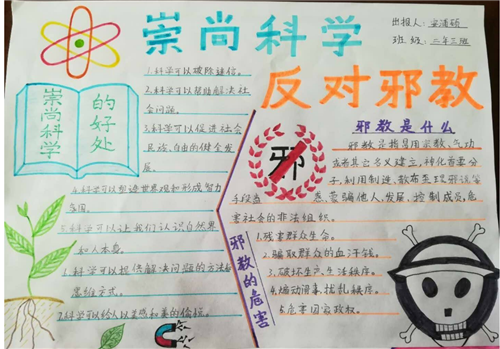 崇尚科学
反对邪教
出报人：
班级：二年三班
崇尚科学
的好处
1.科学可以破除迷信。
2.科学可以帮助解决社
会问题。
3.科学可以促进社会
民主、自由的健全发
展。
4.科学可以塑造世界观和形成智力
氛围。
5.科学可以让我们认识自然界
和人本身。
6.科学可以提供解决问题的方法和
思维方式。
7.科学可以给人以美感和美的愉悦。
邪教是什么
邪教是指冒用宗教、气功
或者其它名义建立，神化首要分
子，利用制造、散布歪理邪说等
手段蛊惑、蒙骗他人，发展、控制成员，危
害社会的非法组织。
邪
邪教的危害
1.残害群众生命。
2.骗取群众的血汗钱。
3.破坏生产、生活秩序。
4.煽动闹事，扰乱秩序。
5.危害国家政权。